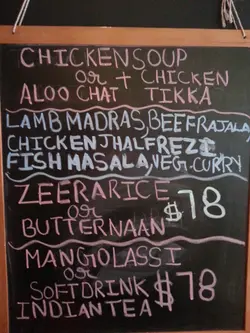 CHICKEN SOUP
or + CHICKEN
ALOO CHAT TIKKA
LAMB MADRAS, BEEF RAJALA,
CHICKEN JHALFREZI
FISH MASALA, VEG-CURRY
ZEERA RICE
or
BUTTER NAAN $78
MANGO LASSI
or
SOFT DRINK $78
INDIAN TEA